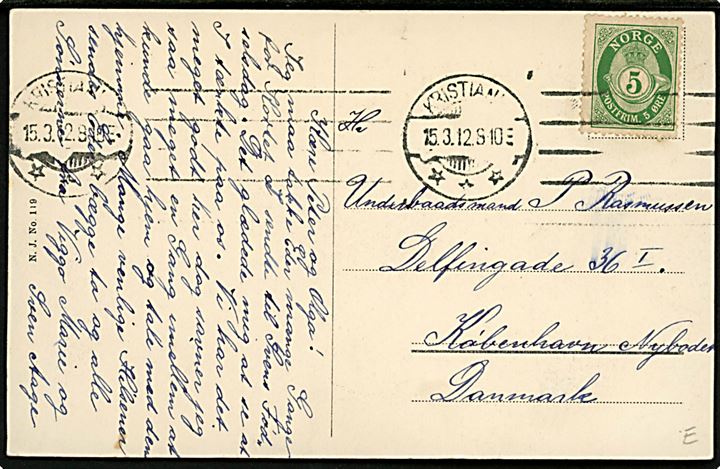 Kære Peter og Olga!
Jeg maa takke Eder mange Gange
for Kortet I sendte til Svens Føds
selsdag. Det glædede mig at se at
I tænkte paa os. Vi har det
meget godt her dog savner jeg
saa meget en Gang imellem at
kunde gaa hjem og tale med dem
hjemme. Mange venlige Hilsener
sendes Eder begge to og alle
fra Viggo Marie og
Sven Aage
N. J. No 119
KRISTIANIA
15.3.12.8-10E
KRISTIANIA
15.3.12.8-10E
NORGE
5
POSTFRIM. 5 ØRE
Hr.
Underbaadsmand P. Rasmussen
Delfingade 36 I.
København Nyboder
Danmark
E